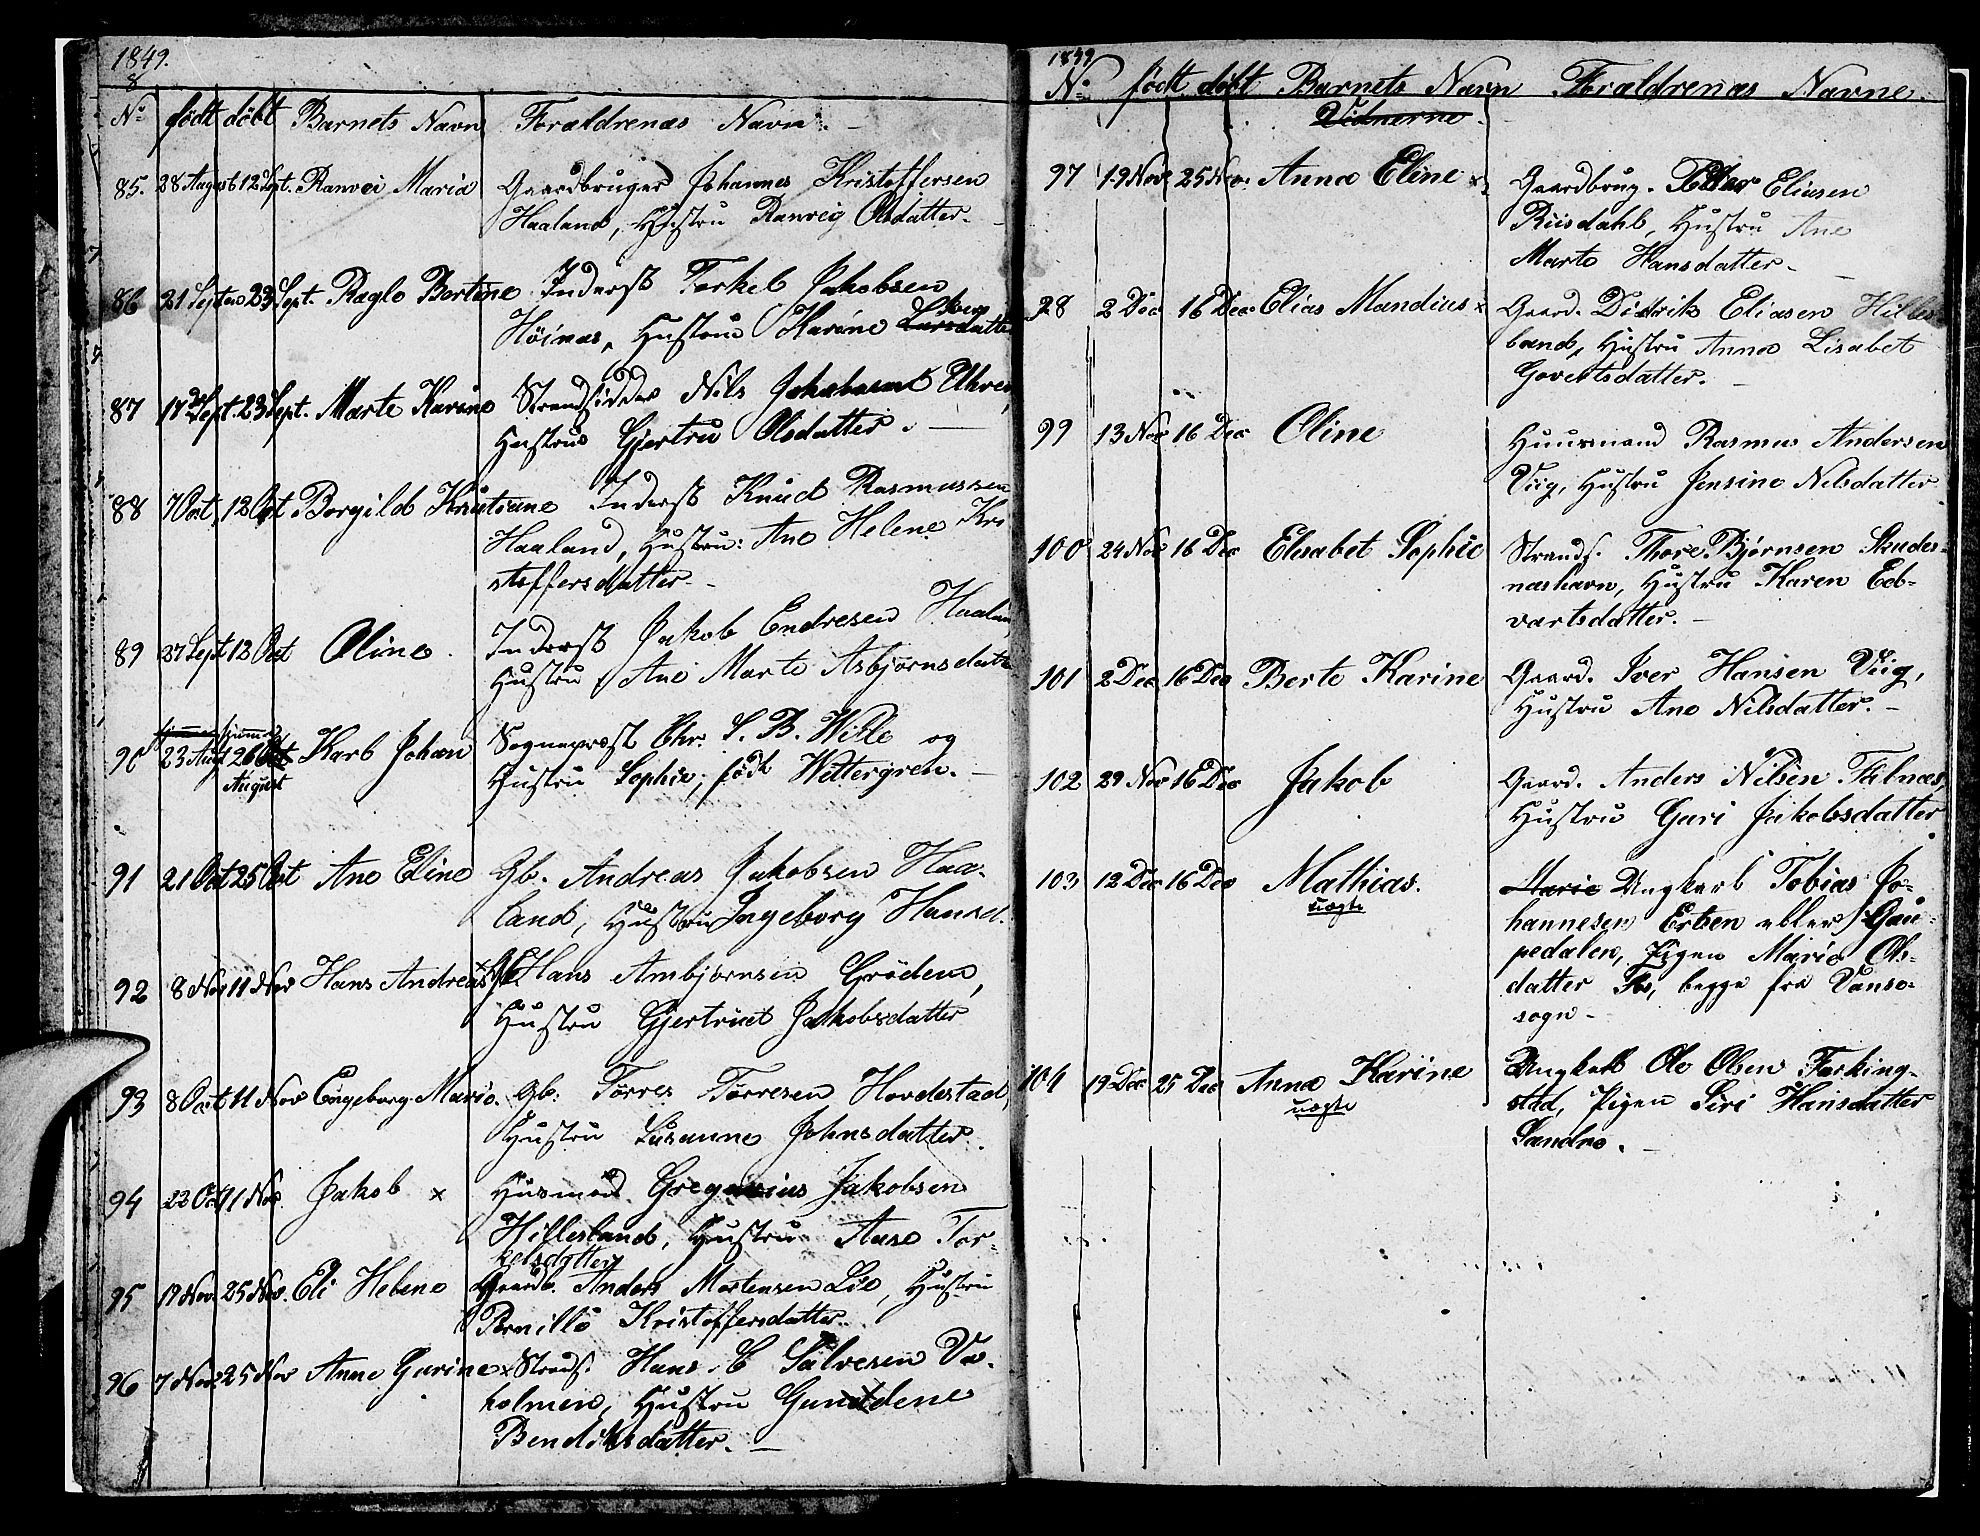 1849.
8
No født døbt Barnets Navn Forældrenas Navn.
85. 28 August 12 Sept. Ranvei Maria Gaardbruger Johannes Kristoffersen
Haaland, Hustru Ranveig Olsdatter.
86 21 Septem 23 Sept. Raglo Bertine Inderst Torkel Jakobsen
Høinæs, Hustrue Karine Larsdatter
87 17 Sept. 23 Sept. Marte Karine Strandsidder Nils Jakobsen Uhre,
Hustrue Gjertru Olsdatter.
88 7 Oct, 12 Oct Borgild Kristiane Inderst Knud Rasmussen
Haaland, Hustru: Ane Helene Kri
stoffersdatter.
89 27 Sept 12 Oct Oline. Inderst Jakob Endresen Haaland
Hustru Ane Marte Asbjørnsdatt
90 23 Aug 26 Oct Karl Johan Sognepræst Chr. S. B. Wille og
August Hustru Sophie, født Wettergren.
91 21 Oct 25 Oct Ane Eline Gb. Andreas Jakobsen Haa-
land, Hustru Ingeborg Hansd.
92 8 Nov 11 Nov Hans Andreas x Gb. Hans Ambjørnsen Grødem,
Hustru Gjertrud Jakobsdatter
93 8 Oct 11 Nov Engeborg Marie. Gb: Tørres Tørresen Hovdestad,
Hustru Susanne Johnsdatter.
94 22 Oct 11 Nov. Jakob x Husmand Gregorius Jakobsen
Hillesland, Hustru Aase Tor-
kelsdatter
95 19 Nov. 25 Nov. Eli Helene Gaardb. Anders Mortensen Lie, Hustru
Pernille Kristoffersdatter.
96 7 Nov. 25 Nov Anne Gurine x Strands. Hans C Salvesen Va-
holmen, Hustru Gunildene
Bendiksdatter.
1849
No født døbt Barnets Navn Forældrenas Navne.
Vidnerne.
97 19 Nov 25 Nov. Anna Eline x Gaardbrug. Peder Eliasen
Riisdahl, Hustru Ane
Marte Hansdatter.
98 2 Dec 16 Dec Elias Mandius x Gaard. Didrik Eliasen Hilles
land, Hustru Anna Lisabet
Govertsdatter.
99 13 Nov 16 Dec Oline Huusmand Rasmus Andersen
Viig, Hustru Jensine Nilsdatter
100 24 Nov 16 Dec Elisabet Sophie Strands. Thore Bjørnsen Skudes-
næshavn, Hustru Karen Ed-
vartsdatter.
101 2 Dec 16 Dec Berte Karine Gaard. Iver Hansen Viig,
Hustru Ane Nilsdatter.
102 29 Nov 16 Dec Jakob Gaard. Anders Nilsen Falnæs,
Hustru Guri Jakobsdatter
103 12 Dec 16 Dec Mathias. Marie Ungkarl Tobias Jo-
uægte hannesen Ertsen eller Gau-
pedalen, Pigen Marie Ols-
datter Fos, begge fra Vanse-
sogn
104 19 Dec 25 Dec Anna Karine Ungkarl Ole Olsen Ferking-
uægte stad, Pigen Siri Hansdatter
Sandve.